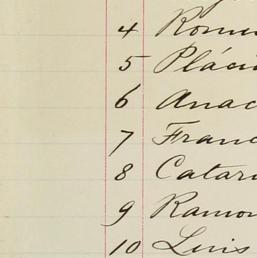 4 Rome
5 Pláci
6 Anac
7 Franc
8 Catar
9 Ramon
10 Luis